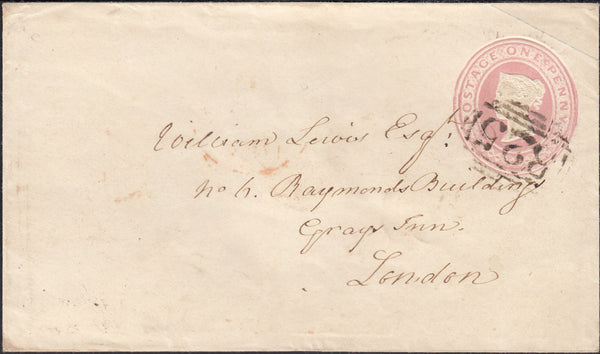 POSTAGE ONE PENNY
William Lewis Esqr.
No 6. Raymonds Buildings
Grays Inn.
London